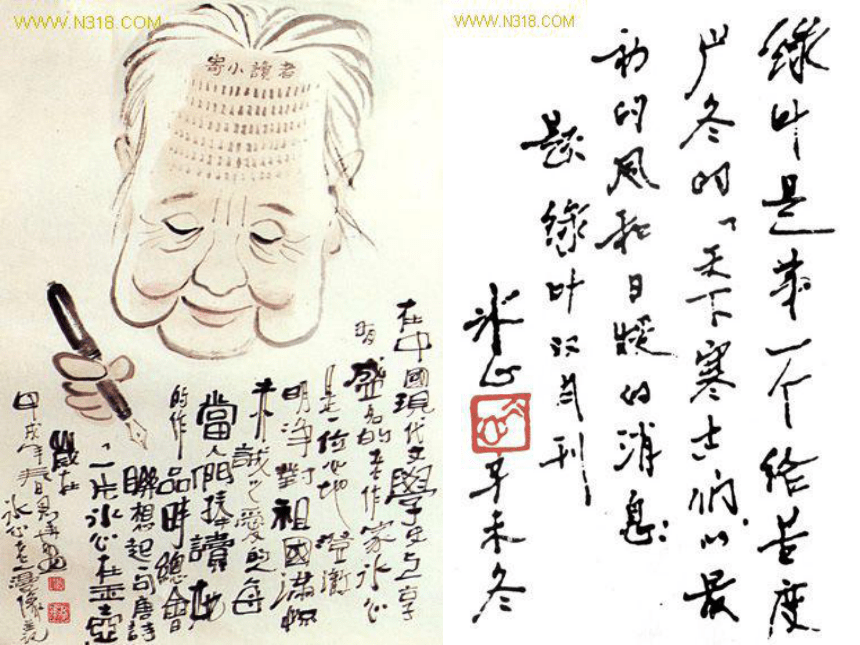 WWW.N318.COM
寄小讀者
在中國現代文學史上享
有盛名的老作家冰心
是一位心地澄澈
明净對祖國滿懷
赤誠之愛的每
當人們捧讀她
的作品時總會
聯想起一句唐詩
「一片冰心在玉壺
歲在
甲戌年春日
冰心老人漫像
WWW.N318.COM
绿叶是第一个给度
严冬的「天下寒士们」以最
初的风和日暖的消息.
题绿叶双月刊
冰心
辛未冬